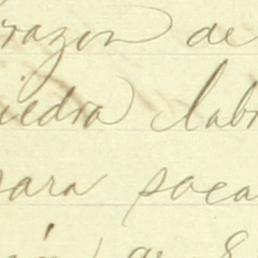 razon de
iedra labr
para soca